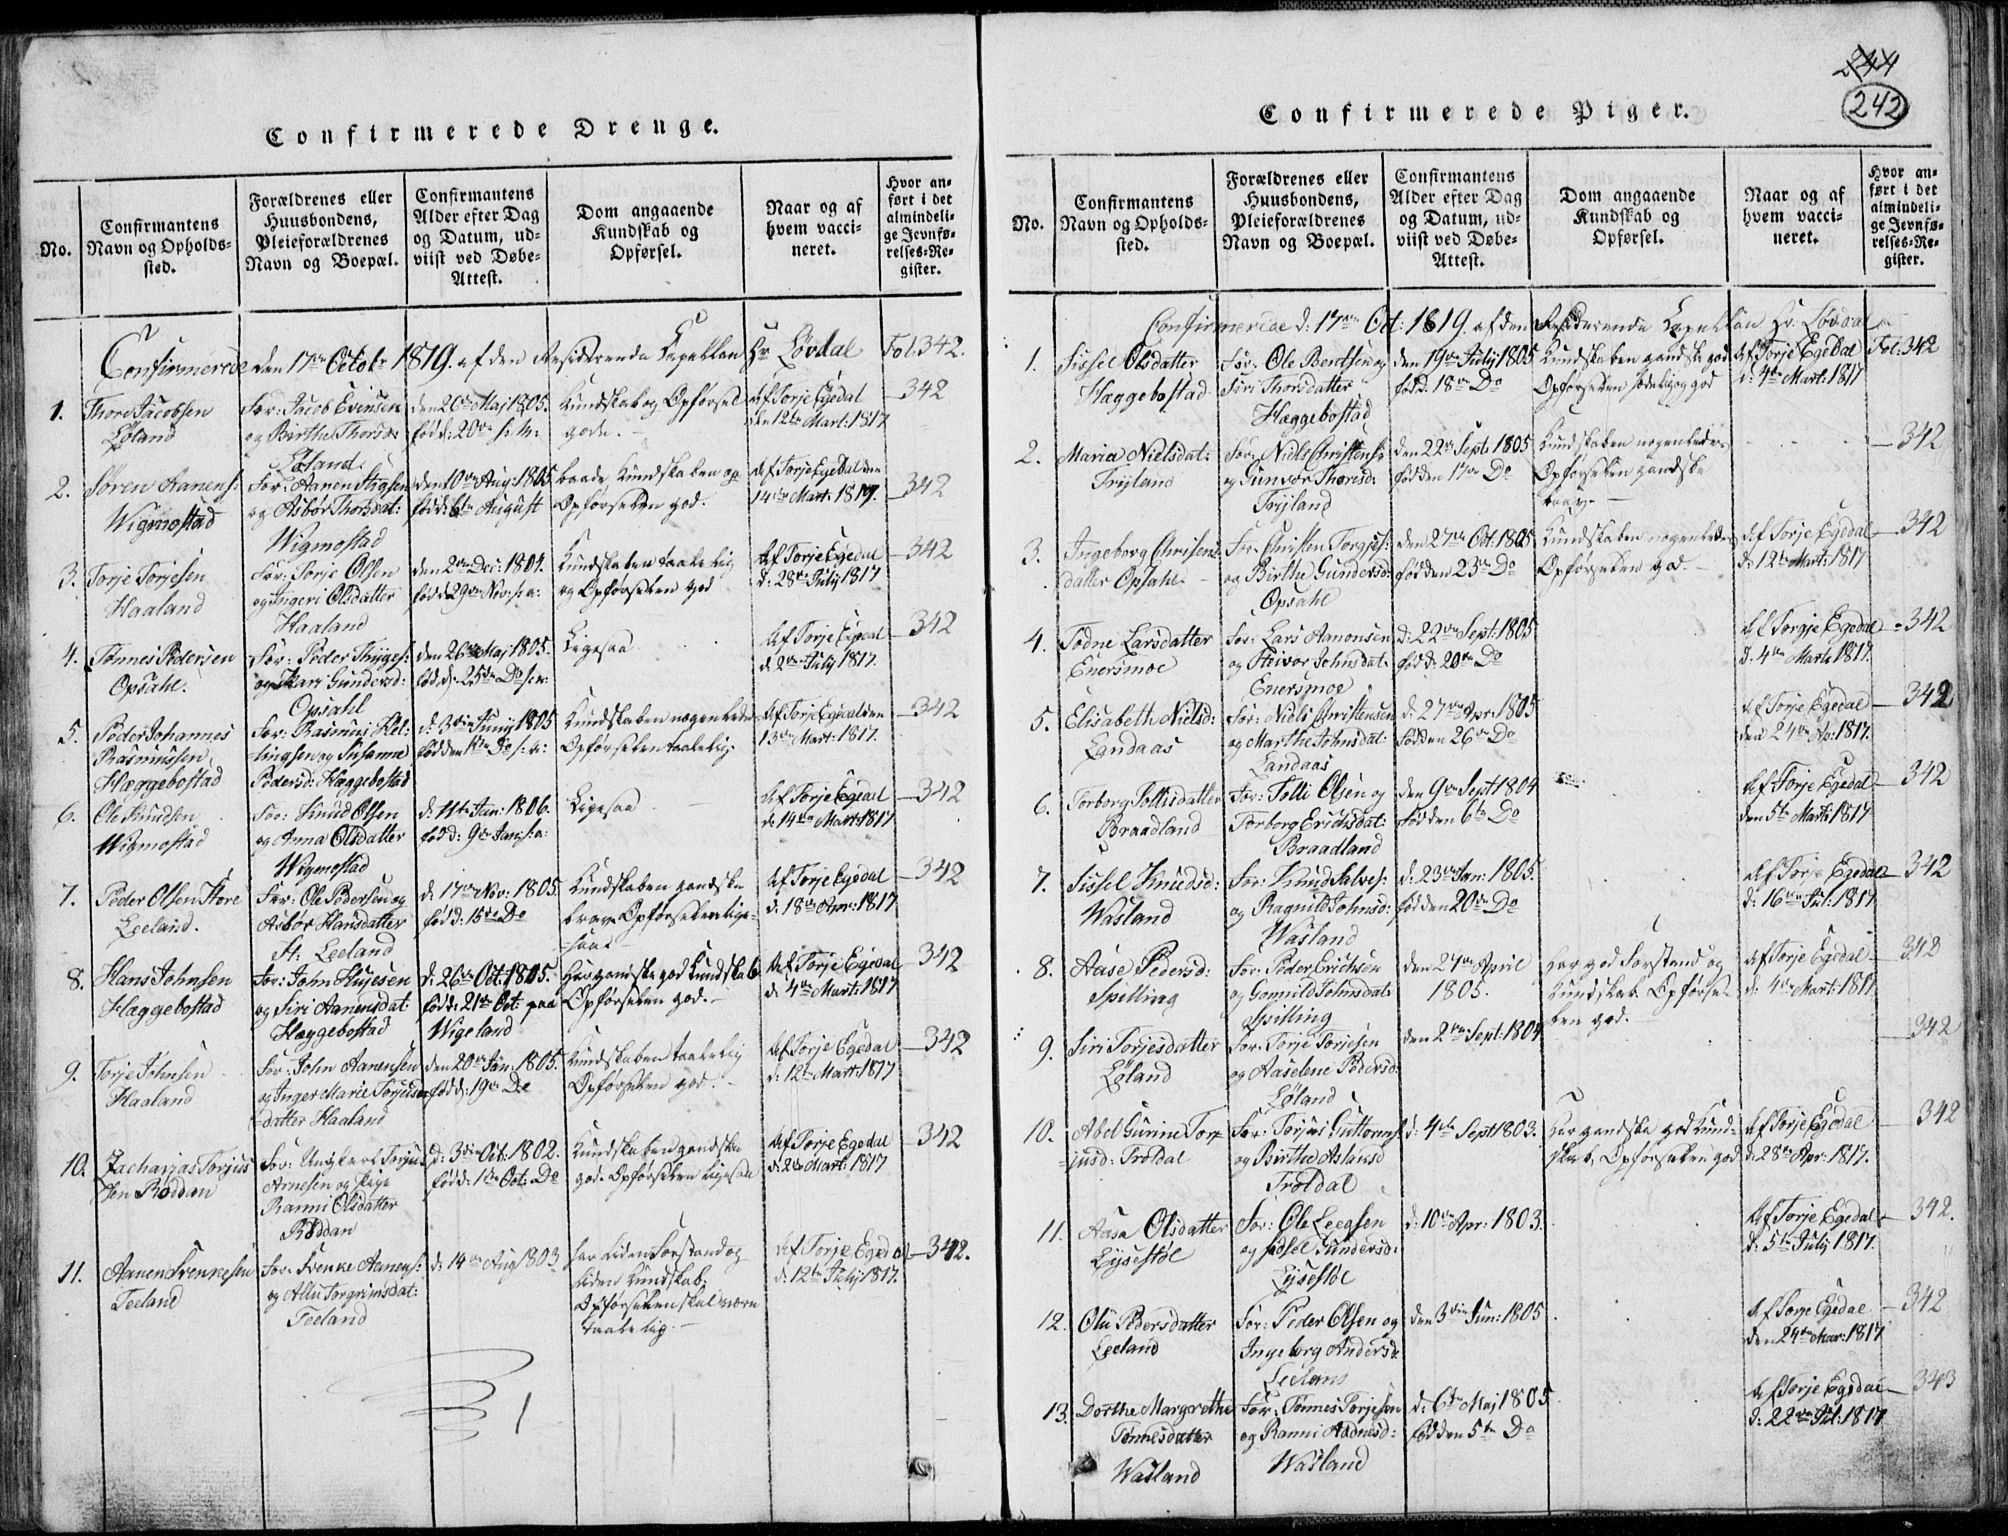 244
242
Confirmerede Drenge.
No.
Confirmantens
Navn og Opholds-
sted.
Forældrenes eller
Huusbondens,
Pleieforældrenes
Navn og Boepæl.
Confirmantens
Alder efter Dag
og Datum, ud-
viist ved Døbe-
Attest.
Dom angaaende
Kundskab og
Opførsel.
Naar og af
hvem vacci-
neret.
Hvor an-
ført i det
almindeli-
ge Jevnfø-
relses-Re-
gister.
Confirmerede den 17de Octobr 1819. af den Residerende Capellan Hr Løvdal Fol. 342.
1.
Thore Jacobsen
Løland
For: Jacob Evensen
og Birthe Thorsd:
Løland.
den 26de Maj 1805.
født d: 20de s: M:
Kundskab og Opførsel
gode.
Af Torje Egedal
den 12te Mart: 1817
342
2.
Søren Aanens:
Wigmostad
For: Aanen Stigsen
og Asbør Thorsdat:
Wigmostad
den 10de Aug: 1805
født d: 6te August
baade Kundskaben og
Opførselen god.
Af Torje Egedal den
14de Mart: 1817.
342
3.
Torje Torjesen
Haaland
For: Torje Olsen
og Ingeri Olsdatter
Haaland
den 2den Dec: 1804.
født 29de Nov: s: a:
Kundskaben taalelig
og Opførselen god
Af Torje Egedal
d: 28de July 1817
342
4.
Tønnes Pedersen
Opsahl.
For: Peder Thyges:
og Mari Gundersd:
Opsahl
den 26de Maj 1805.
fød. d: 25de Do s: a:
Ligesaa
Af Torje Egedal
d: 2den July 1817.
342
5.
Peder Johannes
Rasmussen,
Hæggebostad
For: Rasmus Klel-
lingsen og Susanne
Pedersd: Hæggebostad
d: 3die Junij 1805
født den 1ste Do s: a:
Kundskaben nogenledes
Opførselen taalelig.
Af Torje Egedal den
13de Mart: 1817.
342
6.
Ole Knudsen
Wigmostad
For: Knud Olsen
og Anna Olsdatter
Wigmostad
d: 11te Jan: 1806.
født d: 9de Jan: s: a:
Ligesaa
Af Torje Egedal
d: 14de Mart: 1817
342
7.
Peder Olsen Store
Leeland.
For: Ole Pedersen og
Asbør Hansdatter
St: Leeland
d: 17de Nov: 1805.
født d: 15de Do
Kundskaben gandske
brav Opførselen lige-
saa
Af Torje Egedal
d: 18de Apr: 1817
342
8.
Hans Johnsen
Hæggebostad
For: John Hujesen
og Siri Aanensdat:
Hæggebostad
d: 26de Oct: 1805.
født d: 21de Oct: paa
Wigeland
Har gandske god Kundskab
Opførselen god.
Af Torje Egedal
d: 4de Mart: 1817
342
9.
Torje Johnsen
Haaland
For: John Aanensen
og Inger Marie Torjuls-
datter Haaland
den 20de Jan: 1805.
født d: 19de Do
Kundskaben taalelig
Opførselen god.
Af Torje Egedal
d: 12te Mart: 1817
342
10.
Zacharias Torjus
sen Røddan
For: Ungkarl Torjus
Arnesen og Pige
Ranni Olsdatter
Røddan
d: 3die Oct: 1802.
født d: 1ste Oct: Do
Kundskaben gandske
god. Opførselen ligesaa
Af Torje Egedal
d: 2den Mart: 1817
342
11.
Aanen Svenkesen
Teeland
For: Svenke Aanens:
og Allu Torgrimsdat:
Teeland
d: 14de Aug 1803
har liden Forstand og
liden Kundskab;
Opførselen skal være
taalelig.
Af Torje Egedal
d: 12te July 1817.
342.
Confirmerede Piger.
No.
Confirmantens
Navn og Opholds-
sted.
Forældrenes eller
Huusbondens,
Pleieforældrenes
Navn og Boepæl.
Confirmantens
Alder efter Dag
og Datum, ud-
viist ved Døbe-
Attest.
Dom angaaende
Kundskab og
Opførsel.
Naar og af
hvem vacci-
neret.
Hvor an-
ført i det
almindeli-
ge Jevnfø-
relses-Re-
gister.
Confirmerede d: 17de Oct: 1819. af den Residerende Capellan Hr. Løvdal
1.
Sissel Olsdatter
Hæggebostad
For: Ole Bentsen og
Siri Thorsdatter
Hæggebostad
den 19de July 1805
fød d. 18de Do
Kundskaben gandske god
Opførselen sædelig og god
Af Torje Egedal
d: 4de Mart: 1817
Fol: 342
2.
Maria Nielsdat:
Tryland
For: Niels Christens:
og Gunvor Thorsd:
Tryland
den 22de Sept: 1805
født den 17de Do
Kundskaben nogenledes
Opførselen gandske
brav.
342
3.
Ingeborg Christens
datter Opsahl
For: Christen Torgjes:
og Birthe Gundersd:
Opsahl
den 27de Oct: 1805
født den 23de Do
Kundskaben nogenledes
Opførselen god
Af Torje Egedal
d: 12te Mart: 1817
342
4.
Todne Larsdatter
Enersmoe
For: Lars Aanonsen
og Steivor Johnsdat:
Enersmoe
d: 22de Sept: 1805
født d: 20de Do
Af Torgje Egedal
d. 4de Marts 1817.
342
5.
Elisabeth Nielsd:
Landaas
For: Niels Christensen
og Marthe Johnsdat:
Landaas
d: 27de Apr: 1805
født den 26de Do
Af Torje Egedal
den 24de Ap: 1817.
342
6.
Torborg Tollisdatter
Braadland
For: Tolli Olsen og
Torborg Erichsdat:
Braadland
den 9de Sept 1804
født den 6te Do
Af Torje Egedal
den 5te Mart: 1817
342
7.
Sissel Knudsd:
Wasland
For: Knud Salves:
og Ragnild Johnsd:
Wasland
d: 23de Jan: 1805.
født den 20de Do
Af Torje Egedal
d: 16de Jul: 1817
342
8.
Aase Pedersd:
Spilling
For: Peder Erichsen
og Gomnild Johnsdat:
Spilling
den 27de April
1805.
Har god Forstand og
Kundskab. Opførse-
len god.
Af Torje Egedal
d: 4de Mart: 1817
342
9.
Siri Torjesdatter
Løland
For: Torje Torjesen
og Aaselene Pedersd:
Løland
den 2den Sept: 1804
342
10.
Abel Gurine Tor-
jusd: Troldal
For: Torjus Guttorms:
og Birthe Aslausd
Troldal
d: 4de Sept 1803.
Har gandske god Kund-
skab, Opførselen god
Af Torje Egedal
d: 28de Apr: 1817.
342
11.
Aasa Olsdatter
Lysestøl
For: Ole Leegsen
og Sidsel Gundersd:
Lysestøl
d: 10de Apr: 1803.
Af Torje Egedal
d: 5te July 1817.
342.
12.
Olu Pedersdatter
Leeland
For: Peder Olsen og
Ingeborg Andersd:
Leeland
den 3die Jun: 1805
Af Torje Egedal
den 24de Mar: 1817
342
13.
Dorthe Margrethe
Tønnesdatter
Wasland
For: Tønnes Torjesen
og Ranni Aadnesd:
Wasland
d: 6te Maj 1805
født den 5te Do
Af Torje Egedal
d: 22de Jul: 1817
343